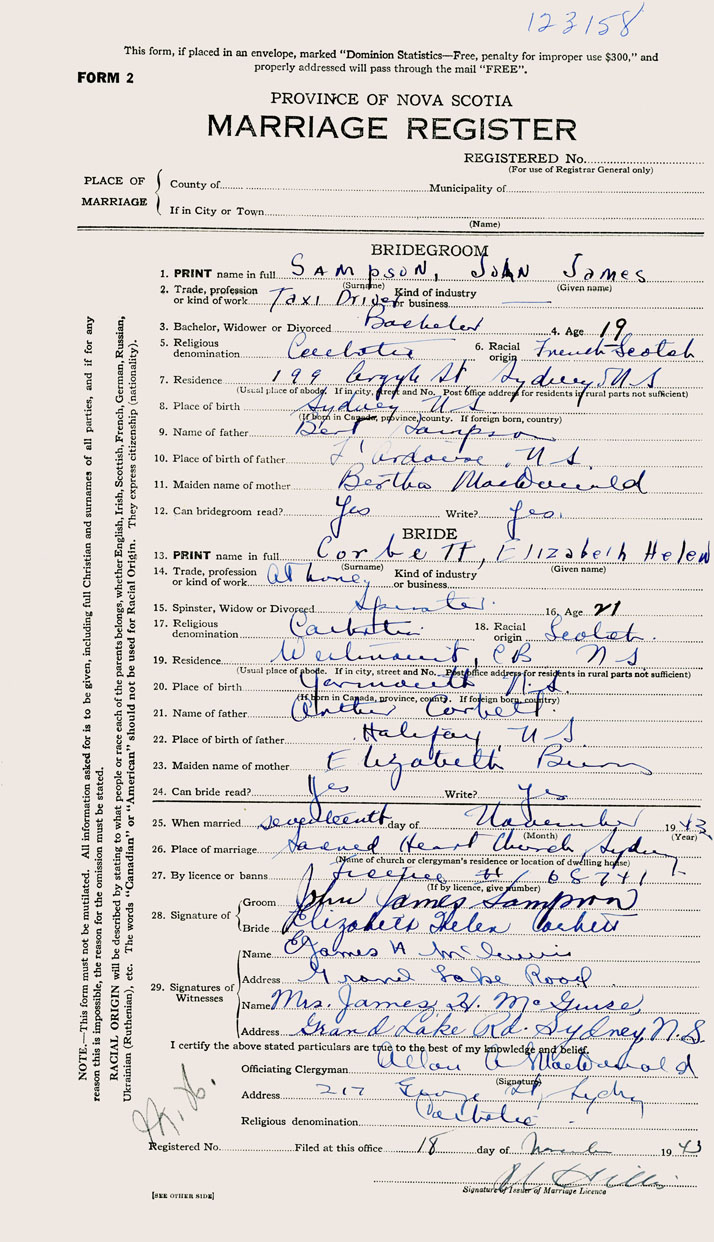 123158
This form, if placed in an envelope, marked "Dominion Statistics—Free, penalty for improper use $300," and
properly addressed will pass through the mail "FREE".
FORM 2
PROVINCE OF NOVA SCOTIA
MARRIAGE REGISTER
REGISTERED No.
(For use of Registrar General only)
PLACE OF MARRIAGE
County of Municipality of
If in City or Town
(Name)
BRIDEGROOM
1. PRINT name in full SAMPSON, John James
(Surname) (Given name)
2. Trade, profession or kind of work Taxi Driver Kind of industry or business ——
3. Bachelor, Widower or Divorced Bachelor 4. Age 19
5. Religious denomination Catholic 6. Racial origin French Scotch
7. Residence 199 Argyle St Sydney N S
(Usual place of abode. If in city, street and No. Post office address for residents in rural parts not sufficient)
8. Place of birth Sydney N S
(If born in Canada, province, county. If foreign born, country)
9. Name of father Bert Sampson
10. Place of birth of father L'Ardoise N S.
11. Maiden name of mother Bertha MacDonald
12. Can bridegroom read? Yes Write? Yes.
BRIDE
13. PRINT name in full Corbett, Elizabeth Helen
(Surname) (Given name)
14. Trade, profession or kind of work At home Kind of industry or business
15. Spinster, Widow or Divorced Spinster 16. Age 21
17. Religious denomination Catholic 18. Racial origin Scotch.
19. Residence C B N S
(Usual place of abode. If in city, street and No. Post office address for residents in rural parts not sufficient)
20. Place of birth Yarmouth N.S.
(If born in Canada, province, county. If foreign born, country)
21. Name of father Arthur Corbett.
22. Place of birth of father Halifax, N S
23. Maiden name of mother Elizabeth
24. Can bride read? Yes Write? Yes
25. When married seventeenth day of November 1943
(Month) (Year)
26. Place of marriage Sacred Heart Church, Sydney
(Name of church or clergyman's residence or location of dwelling house)
27. By licence or banns licence # 68741
(If by licence, give number)
28. Signature of
Groom John James Sampson
Bride Elizabeth Helen Corbett
29. Signatures of Witnesses
Name James H
Address Grand Lake Road
Name Mrs. James H. McGuire
Address Grand Lake Rd. Sydney, N.S.
I certify the above stated particulars are true to the best of my knowledge and belief.
Officiating Clergyman Allan A MacDonald
(Signature)
Address 217 George St, Sydney
Religious denomination Catholic
Registered No. Filed at this office 18 day of November 1943
Signature of Issuer of Marriage Licence
[SEE OTHER SIDE]
NOTE.—This form must not be mutilated. All information asked for is to be given, including full Christian and surnames of all parties, and if for any
reason this is impossible, the reason for the omission must be stated.
RACIAL ORIGIN will be described by stating to what people or race each of the parents belongs, whether English, Irish, Scottish, French, German, Russian,
Ukrainian (Ruthenian), etc. The words "Canadian" or "American" should not be used for Racial Origin. They express citizenship (nationality).